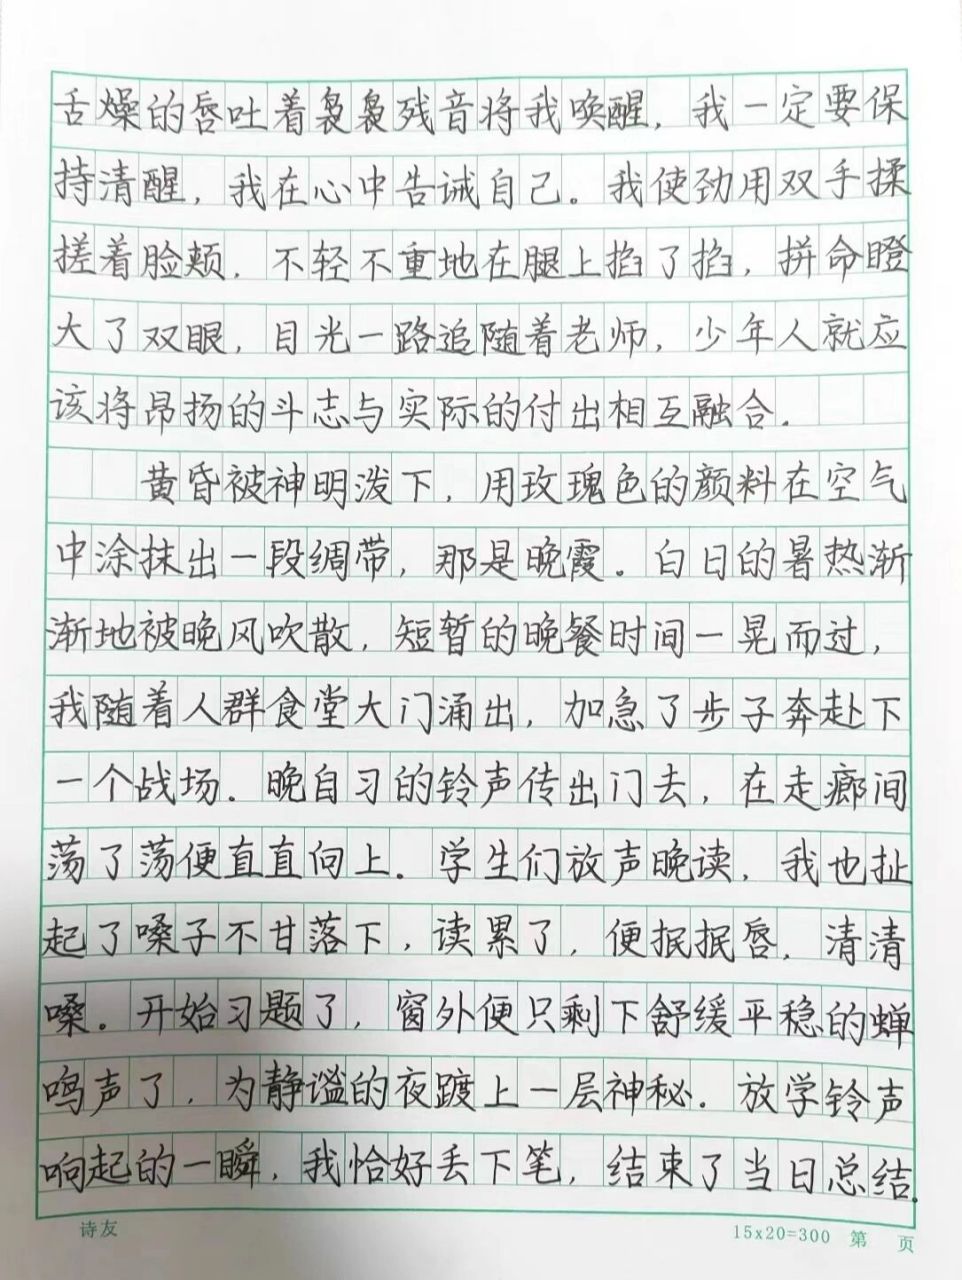 舌燥的唇吐着袅袅残音将我唤醒，我一定要保
持清醒，我在心中告诫自己。我使劲用双手揉
搓着脸颊，不轻不重地在腿上掐了掐，拼命瞪
大了双眼，目光一路追随着老师，少年人就应
该将昂扬的斗志与实际的付出相互融合。
黄昏被神明泼下，用玫瑰色的颜料在空气
中涂抹出一段绸带，那是晚霞。白日的暑热渐
渐地被晚风吹散，短暂的晚餐时间一晃而过，
我随着人群食堂大门涌出，加急了步子奔赴下
一个战场。晚自习的铃声传出门去，在走廊间
荡了荡便直直向上。学生们放声晚读，我也扯
起了嗓子不甘落下，读累了，便抿抿唇，清清
嗓。开始习题了，窗外便只剩下舒缓平稳的蝉
鸣声了，为静谧的夜踱上一层神秘。放学铃声
响起的一瞬，我恰好丢下笔，结束了当日总结。
诗友
15x20=300 第 页